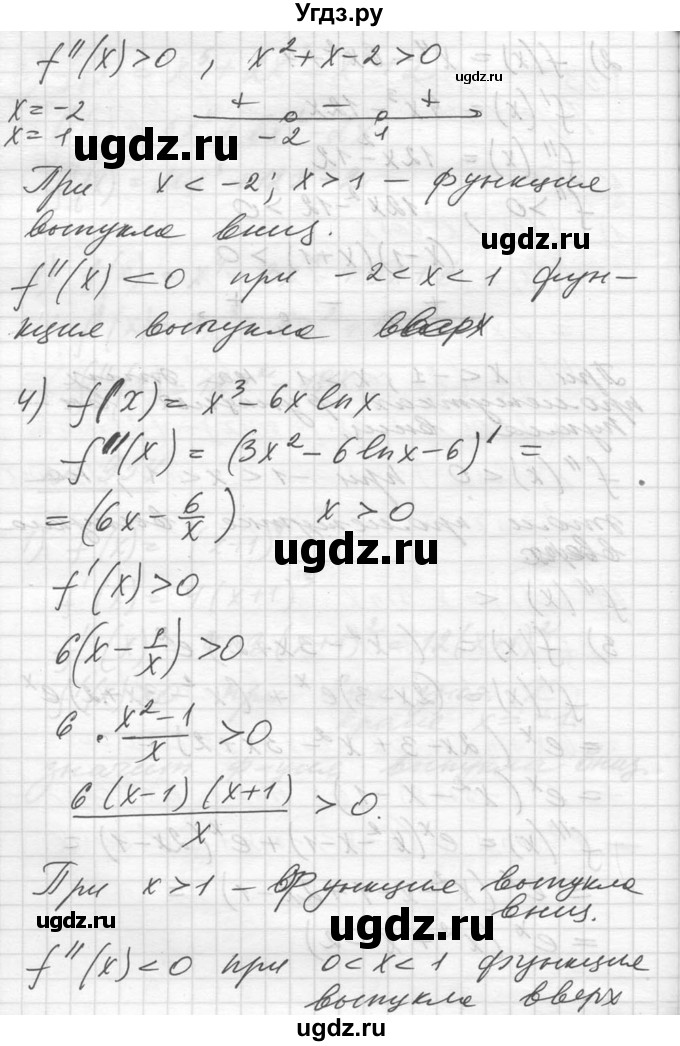 Угдз.ру
f''(x)>0 , x²+x-2>0
ugdz.ru
x=-2
x=1
+ - +
-2 1
ugdz.ru
При x<-2; x>1 - функция
выпукла вниз.
ugdz.ru
f''(x)<0 при -2<x<1 фун-
кция выпукла вверх
4) f(x)=x³-6x lnx
f''(x)=(3x²-6lnx-6)'=
=(6x-6/x) x>0
ugdz.ru
f'(x)>0
6(x-1/x)>0
6·(x²-1)/x>0
6(x-1)(x+1)/x>0.
При x>1 - функция выпукла
вниз.
ugdz.ru
ugdz.ru
f''(x)<0 при 0<x<1 функция
выпукла вверх
ugdz.ru